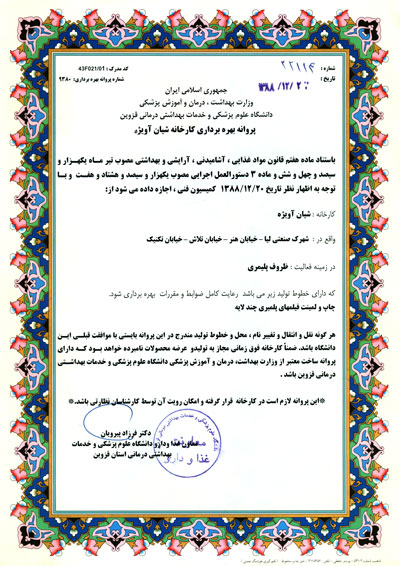 کد مدرک : 43F021/01
شماره پروانه بهره برداری: ۹۳۸۰
شماره : ۲۲۱۱۴
تاریخ : ۱۳۸۸/۱۲/۲۰
جمهوری اسلامی ایران
وزارت بهداشت ، درمان و آموزش پزشکی
دانشگاه علوم پزشکی و خدمات بهداشتی درمانی قزوین
پروانه بهره برداری کارخانه شیان آویژه
باستناد ماده هفتم قانون مواد غذایی ، آشامیدنی ، آرایشی و بهداشتی مصوب تیر ماه یکهزار و
سیصد و چهل و شش و ماده ۳ دستورالعمل اجرایی مصوب یکهزار و سیصد و هشتاد و هفت و با
توجه به اظهار نظر تاریخ ۱۳۸۸/۱۲/۲۰ کمیسیون فنی ، اجازه داده می شود از:
کارخانه : شیان آویژه
واقع در : شهرک صنعتی لیا – خیابان هنر – خیابان تلاش – خیابان تکنیک
در زمینه فعالیت : ظروف پلیمری
که دارای خطوط تولید زیر می باشد رعایت کامل ضوابط و مقررات بهره برداری شود.
چاپ و لمینت فیلمهای پلمیری چند لایه
هر گونه نقل و انتقال و تغییر نام ، محل و خطوط تولید مندرج در این پروانه بایستی با موافقت قبلی این
دانشگاه باشد. ضمناً کارخانه فوق زمانی مجاز به تولیدو عرضه محصولات نامبرده خواهد بود که دارای
پروانه ساخت معتبر از وزارت بهداشت، درمان و آموزش پزشکی دانشگاه علوم پزشکی و خدمات بهداشتی
درمانی قزوین باشد .
*این پروانه لازم است در کارخانه قرار گرفته و امکان رویت آن توسط کارشناسان نظارتی باشد.*
دکتر فرزاد پیرویان
معاون غذا ودارو دانشگاه علوم پزشکی و خدمات
بهداشتی درمانی استان قزوین
معاونت
غذا و دارو